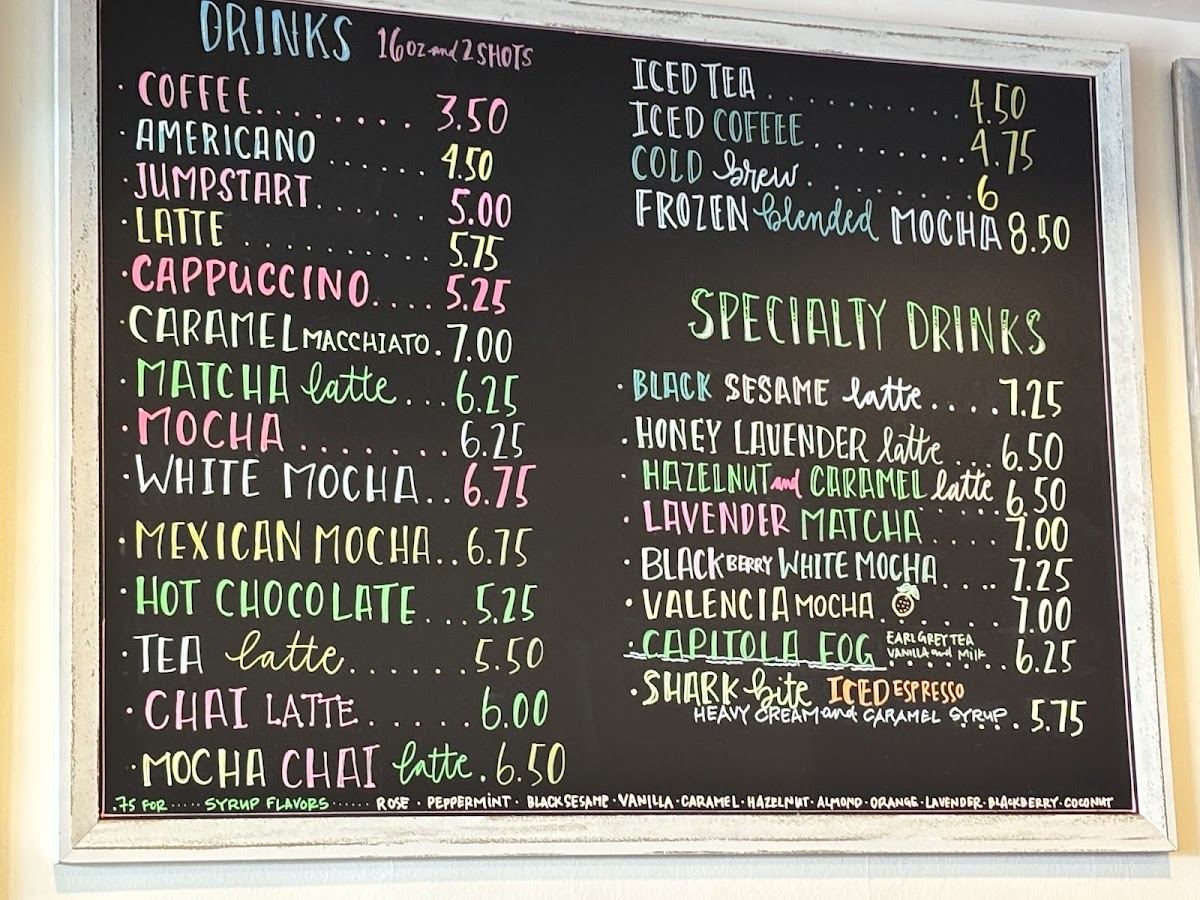 DRINKS 16oz and 2 SHOTS
· COFFEE........ 3.50
· AMERICANO ...... 4.50
· JUMPSTART....... 5.00
· LATTE .......... 5.75
· CAPPUCCINO.... 5.25
· CARAMEL MACCHIATO. 7.00
· MATCHA latte ... 6.25
· MOCHA ........ 6.25
· WHITE MOCHA.. 6.75
· MEXICAN MOCHA.. 6.75
· HOT CHOCOLATE ... 5.25
· TEA latte...... 5.50
· CHAI LATTE...... 6.00
· MOCHA CHAI latte. 6.50
ICED TEA .......... 4.50
ICED COFFEE ........ 4.75
COLD brew......... 6
FROZEN blended MOCHA 8.50
SPECIALTY DRINKS
· BLACK SESAME latte.... 7.25
· HONEY LAVENDER latte ... 6.50
· HAZELNUT and CARAMEL latte ..... 6.50
· LAVENDER MATCHA .... 7.00
· BLACKBERRY WHITE MOCHA.... 7.25
· VALENCIA MOCHA ...... 7.00
· CAPITOLA FOG EARL GREY TEA
VANILLA and MILK ....... 6.25
· SHARK bite ICED ESPRESSO
HEAVY CREAM and CARAMEL SYRUP . 5.75
.75 FOR ····· SYRUP FLAVORS ······ ROSE · PEPPERMINT · BLACK SESAME · VANILLA · CARAMEL · HAZELNUT · ALMOND · ORANGE · LAVENDER · BLACKBERRY · COCONUT